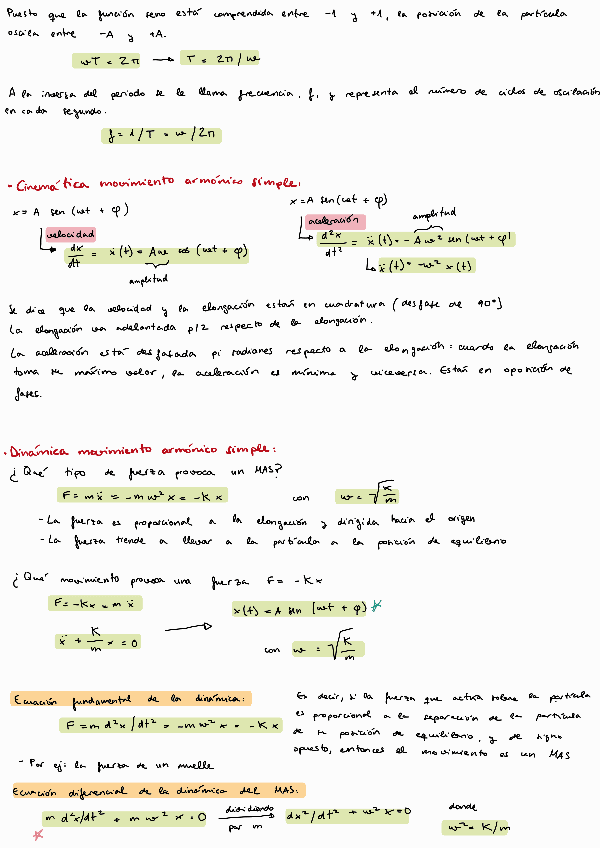 Puesto que la función seno está comprendida entre -1 y +1, la posición de la partícula
oscila entre -A y +A.
wT = 2π → T = 2π/w
A la inversa del periodo se le llama frecuencia, f, y representa el número de ciclos de oscilación
en cada segundo.
f = 1/T = w/2π
- Cinemática movimiento armónico simple:
x = A sen (wt + φ)
velocidad
dx/dt = ẋ(t) = Aw cos (wt + φ)
amplitud
x = A sen (wt + φ)
aceleración
amplitud
d²x/dt² = ẍ(t) = -Aw² sen (wt + φ)
ẍ(t) = -w² x(t)
Se dice que la velocidad y la elongación están en cuadratura (desfase de 90°)
La elongación va adelantada p/2 respecto de la elongación.
La aceleración está desfasada pi radianes respecto a la elongación: cuando la elongación
toma su máximo valor, la aceleración es mínima y viceversa. Están en oposición de
fases.
· Dinámica movimiento armónico simple:
¿Qué tipo de fuerza provoca un MAS?
F = mẍ = -mw²x = -Kx con w = √K/m
- La fuerza es proporcional a la elongación y dirigida hacia el origen
- La fuerza tiende a llevar a la partícula a la posición de equilibrio
¿Qué movimiento provoca una fuerza F = -Kx
F = -Kx = mẍ
ẍ + K/m x = 0
→
x(t) = A sen [wt + φ) *
con w = √K/m
Ecuación fundamental de la dinámica:
F = m d²x/dt² = -mw²x = -Kx
- Por ej: la fuerza de un muelle
Es decir, si la fuerza que actúa sobre la partícula
es proporcional a la separación de la partícula
de su posición de equilibrio, y de signo
opuesto, entonces el movimiento es un MAS
Ecuación diferencial de la dinámica del MAS:
* m d²x/dt² + mw²x = 0 dividiendo por m → dx²/dt² + w²x = 0 donde
w² = K/m